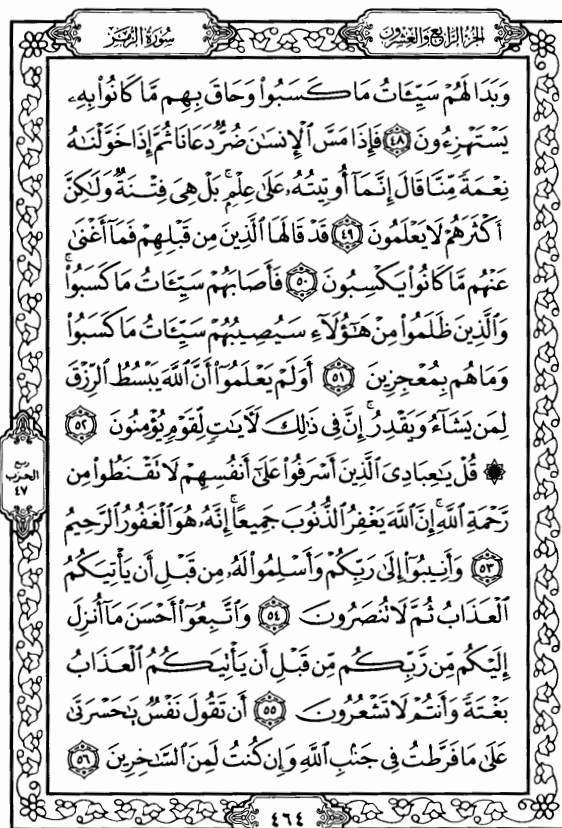 سورة الزمر
الجزء الرابع والعشرون
وَبَدَا لَهُمْ سَيِّـَٔاتُ مَا كَسَبُوا۟ وَحَاقَ بِهِم مَّا كَانُوا۟ بِهِۦ
يَسْتَهْزِءُونَ ٤٨ فَإِذَا مَسَّ ٱلْإِنسَٰنَ ضُرٌّ دَعَانَا ثُمَّ إِذَا خَوَّلْنَٰهُ
نِعْمَةً مِّنَّا قَالَ إِنَّمَآ أُوتِيتُهُۥ عَلَىٰ عِلْمٍۭ ۚ بَلْ هِىَ فِتْنَةٌ وَلَٰكِنَّ
أَكْثَرَهُمْ لَا يَعْلَمُونَ ٤٩ قَدْ قَالَهَا ٱلَّذِينَ مِن قَبْلِهِمْ فَمَآ أَغْنَىٰ
عَنْهُم مَّا كَانُوا۟ يَكْسِبُونَ ٥٠ فَأَصَابَهُمْ سَيِّـَٔاتُ مَا كَسَبُوا۟ ۚ
وَٱلَّذِينَ ظَلَمُوا۟ مِنْ هَٰٓؤُلَآءِ سَيُصِيبُهُمْ سَيِّـَٔاتُ مَا كَسَبُوا۟
وَمَا هُم بِمُعْجِزِينَ ٥١ أَوَلَمْ يَعْلَمُوٓا۟ أَنَّ ٱللَّهَ يَبْسُطُ ٱلرِّزْقَ
لِمَن يَشَآءُ وَيَقْدِرُ ۚ إِنَّ فِى ذَٰلِكَ لَءَايَٰتٍ لِّقَوْمٍ يُؤْمِنُونَ ٥٢
۞ قُلْ يَٰعِبَادِىَ ٱلَّذِينَ أَسْرَفُوا۟ عَلَىٰٓ أَنفُسِهِمْ لَا تَقْنَطُوا۟ مِن
رَّحْمَةِ ٱللَّهِ ۚ إِنَّ ٱللَّهَ يَغْفِرُ ٱلذُّنُوبَ جَمِيعًا ۚ إِنَّهُۥ هُوَ ٱلْغَفُورُ ٱلرَّحِيمُ
٥٣ وَأَنِيبُوٓا۟ إِلَىٰ رَبِّكُمْ وَأَسْلِمُوا۟ لَهُۥ مِن قَبْلِ أَن يَأْتِيَكُمُ
ٱلْعَذَابُ ثُمَّ لَا تُنصَرُونَ ٥٤ وَٱتَّبِعُوٓا۟ أَحْسَنَ مَآ أُنزِلَ
إِلَيْكُم مِّن رَّبِّكُم مِّن قَبْلِ أَن يَأْتِيَكُمُ ٱلْعَذَابُ
بَغْتَةً وَأَنتُمْ لَا تَشْعُرُونَ ٥٥ أَن تَقُولَ نَفْسٌ يَٰحَسْرَتَىٰ
عَلَىٰ مَا فَرَّطتُ فِى جَنۢبِ ٱللَّهِ وَإِن كُنتُ لَمِنَ ٱلسَّٰخِرِينَ ٥٦
ربع
الحزب
٤٧
٤٦٤